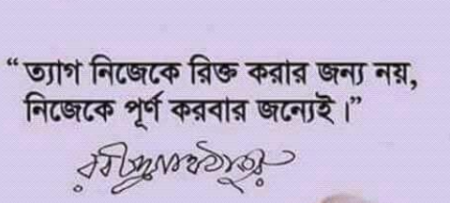 “ত্যাগ নিজেকে রিক্ত করার জন্য নয়,
নিজেকে পূর্ণ করবার জন্যেই।”
রবীন্দ্রনাথ ঠাকুর